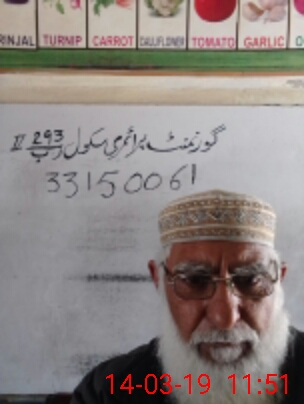 RINJAL TURNIP CARROT CAULIFLOWER TOMATO GARLIC
گورنمنٹ پرائمری سکول 293 رب II
33150061
14-03-19 11:51